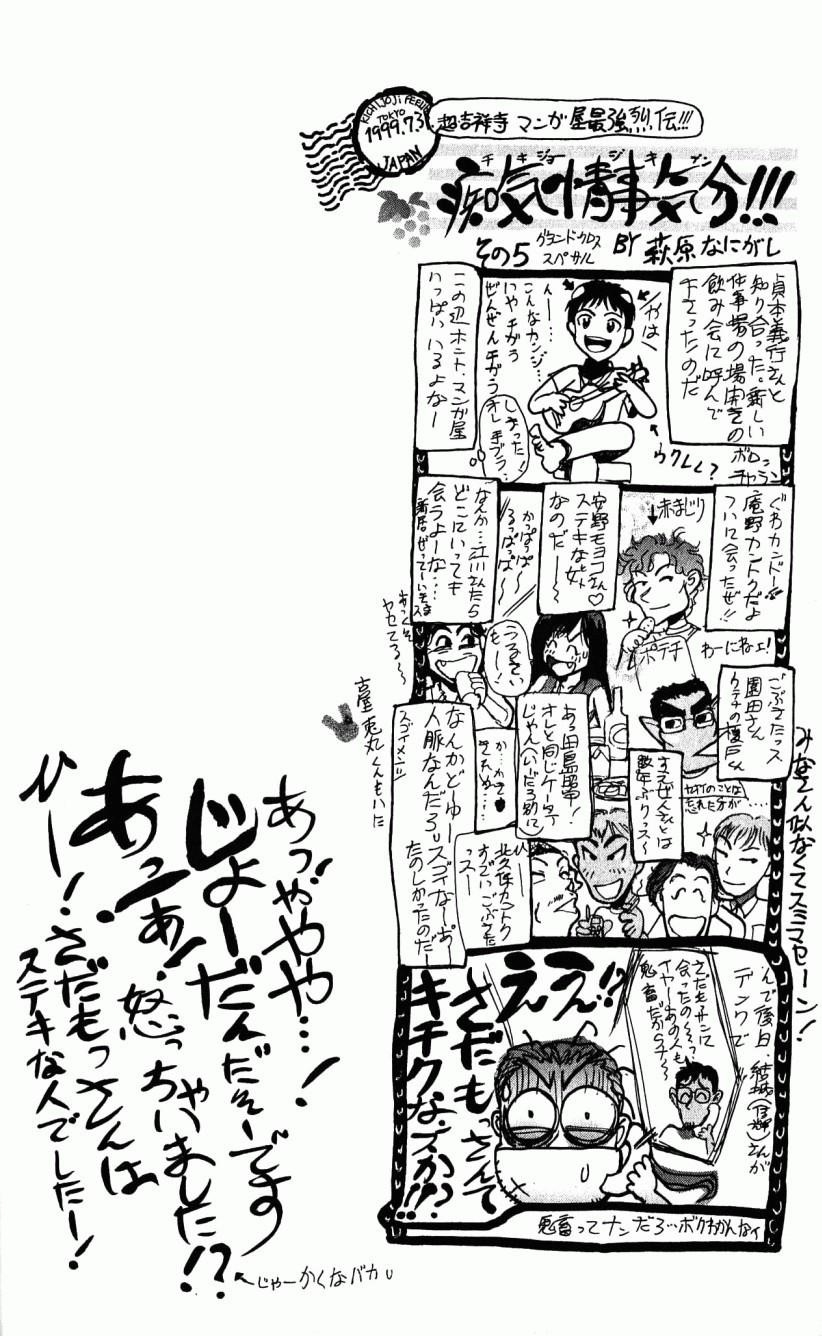 KICHIJOJI
TOKYO
1999.7.3
JAPAN
超吉祥寺 マンガ屋最強烈伝!!!
チキジョージキブン
痴気の情事気分!!!
その5
グランドクロス
スペサル
BY 萩原なにがし
貞本義行さんと
知り合った。新しい
仕事場の場開きの
飲み会に呼んで
下さったのだ
ボロン
チャラン
ガハ
ウクレレ?
んー…
こんなカンジ…
いやチガう
ぜんぜんチガう
しまった!
オレ手ブラ…
この辺ホント、マンガ屋
いっぱいいるよなー
ぐわカンドー!!
庵野カントクだよ
ついに会ったぜ!!
赤まじり
ポテチ
わーにねェ!
安野モヨコさん♡
ステキな女
なのだーー
かっぱっぱ〜
るっぱっぱ〜
なんか…江川さんたら
どこにいっても
会うよーな…
うるせい
もー!
すっくそ
ヤセてる〜
古屋兎丸くんもいた
ごぶさたっス
園田さん
数年ぶりっス〜
忘れた方が…
あっ田島昭宇!
オレと同じケータイ
じゃん
か…かき
きれめ…
北久保カントク
すごいごぶさた
っスー
なんかどーゆー
人脈なんだろυスゴイなーあー
たのしかったのだー
スゴイメンツ
みなさん似なくてスミマセーン!
んで後日、結城(信輝)さんが
デンワで
さだもサンに
会ったのぐらって
イヤーあの人も
鬼畜だからナ〜
ええ!?
さだもっさんて
キチクな方か!!?
鬼畜ってナンだろ…ボクわかんなィ
あっややや…!
じょーだんだそーです
あっあ!怒っちゃいました!?
ひー!さだもっさんは
ステキな人でしたー!
じゃーかくなバカυ